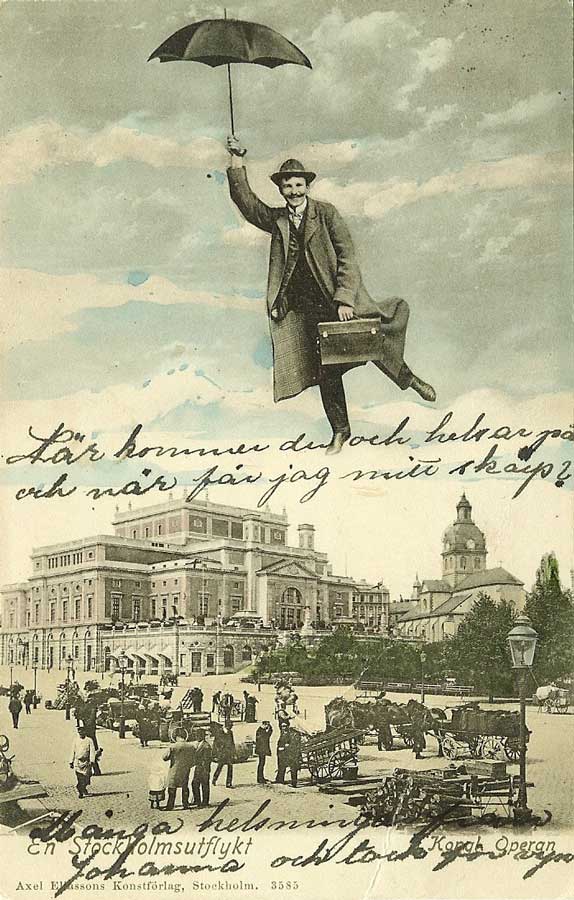 När kommer du och helsar på
och när får jag mitt skåp?
Många helsningar från
En Stockholmsutflykt
Kongl. Operan
Johanna och tack för vyn
Axel Eliassons Konstförlag, Stockholm. 3585